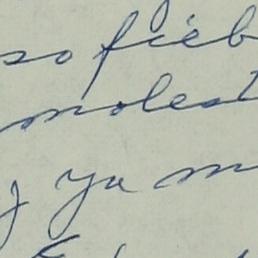 so fieb
molest
y ya m